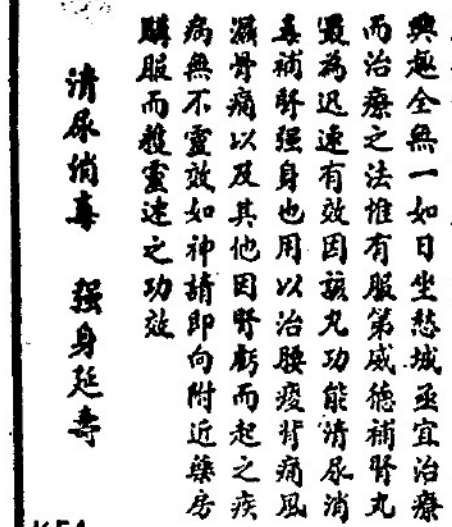 興趣全無一如日坐愁城亟宜治療
而治療之法惟有服第威德補腎丸
最為迅速有效因該丸功能清尿消
毒補腎强身也用以治腰痠背痛風
濕骨痛以及其他因腎虧而起之疾
病無不靈效如神請即向附近藥房
購服而獲靈速之功效
清尿消毒 强身延壽
KF4